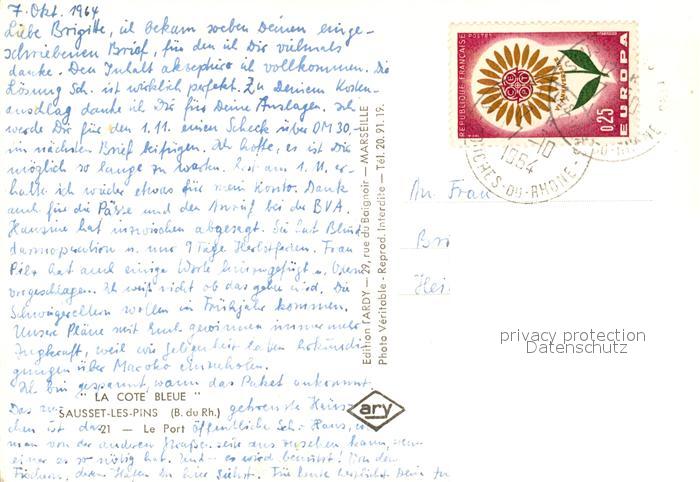 7. Okt. 1964
Liebe Brigitte, ich bekam soeben Deinen einge-
schriebenen Brief, für den ich Dir vielmals
danke. Den Inhalt akzeptiere ich vollkommen. Die
Lösung Sch. ist wirklich perfekt. Zu Deinem Kosten-
anschlag danke ich Dir für Deine Auslagen. Ich
werde Dir für den 1.11. einen Scheck über DM 30.
im nächsten Brief beifügen. Ich hoffe, es ist Dir
möglich so lange zu warten. Erst am 1.11. er-
halte ich wieder etwas für mein Konto. Dank
auch für die Pässe und den Anruf bei der BVA.
hat inzwischen abgesagt. Sie hat Blind-
darmoperation u. nur 9 Tage Herbstferien. Frau
hat auch einige Worte hinzugefügt u. Ostern
vorgeschlagen. Ich weiß nicht ob das gehen wird. Die
Schwiegereltern wollen im Frühjahr kommen.
Unsere Pläne mit Euch gewinnen immer mehr
Zugkraft, weil wir Gelegenheit haben Erkundi-
gungen über Marokko einzuholen.
Ich bin gespannt, wann das Paket ankommt.
" LA COTE BLEUE "
SAUSSET-LES-PINS (B. du Rh.)
21 — Le Port
Das zu getrennte Häus-
chen ist das öffentliche Sch. Haus,
man von der anderen Straßenseite aus sehen kann, wenn
einer es so nötig hat. Und - es wird benutzt! Von den
Fischern, deren Hafen Du hier siehst. Für heute herzlichst Deine
Edition TARDY — 29, rue du Baignoir — MARSEILLE
Photo Véritable - Reprod. Interdite — Tél. 20.91.19.
ary
REPUBLIQUE FRANÇAISE POSTES
0,25
EUROPA
-10
1964
BOUCHES-DU-RHONE
DU-RHONE
An Frau
Bri
Hei
privacy protection
Datenschutz